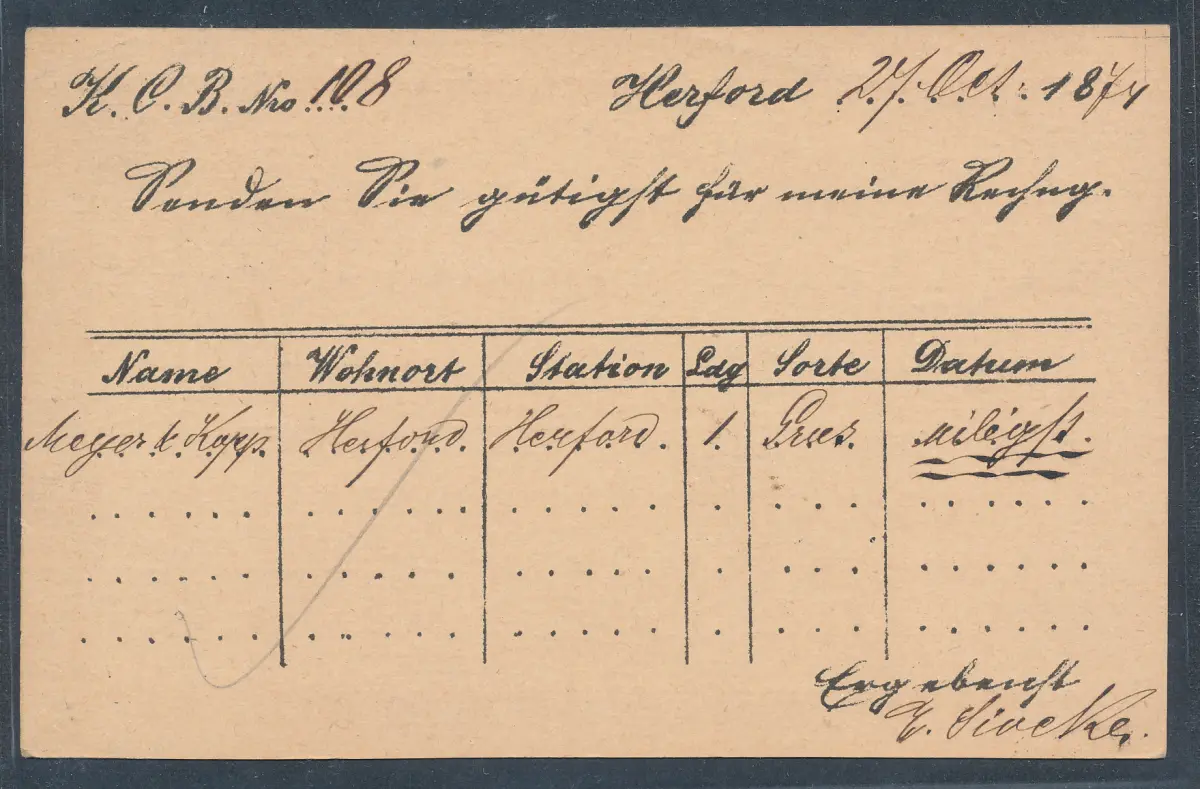 K. C. B. Nro 108 Herford 27. Oct. 1874
Senden Sie gütigst für meine Rechng.
Name Wohnort Station Ldg Sorte Datum
Meyer & Kopp. Herford. Herford. 1.
Ergebenst